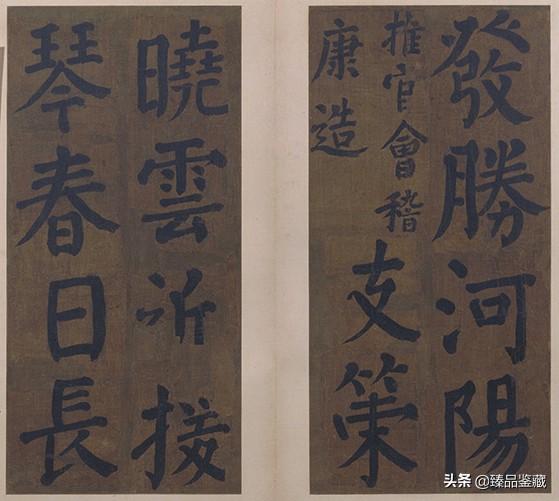 發勝河陽
推官會稽
康造
支策
曉雲近援
琴春日長
头条 @臻品鉴藏